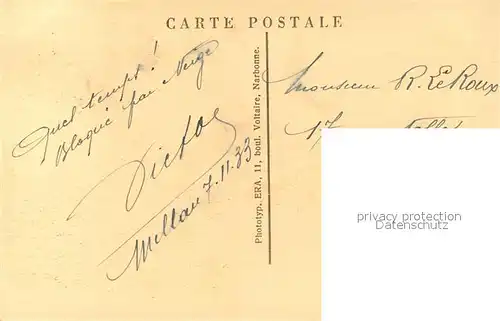 CARTE POSTALE
Quel temps !
Bloqué par Neige
Victor
Millau 7.11.33
Phototyp. ERA, 11, boul. Voltaire, Narbonne.
Monsieur R. Le Roux
17
privacy protection
Keine Reproduktion